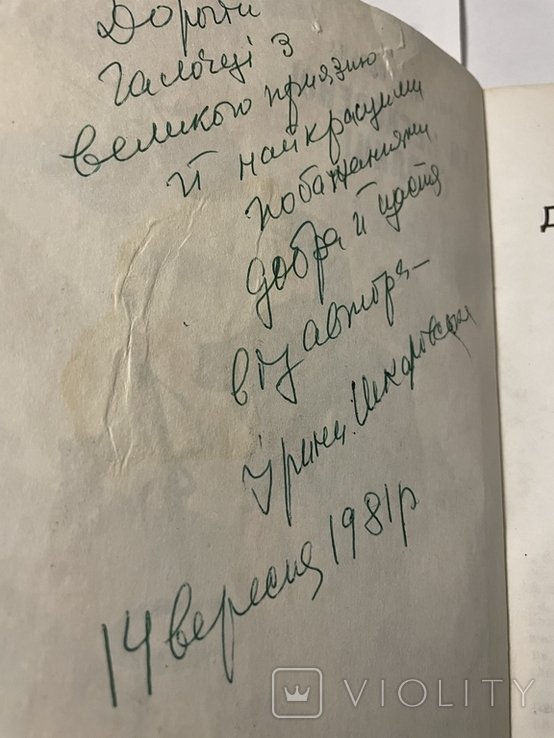 Дорогій
Галочці з
великою приязню
й найкращими
побажаннями
добра й щастя
від автора –
Ірини Шкаровської
14 вересня 1981 р
Д
VIOLITY